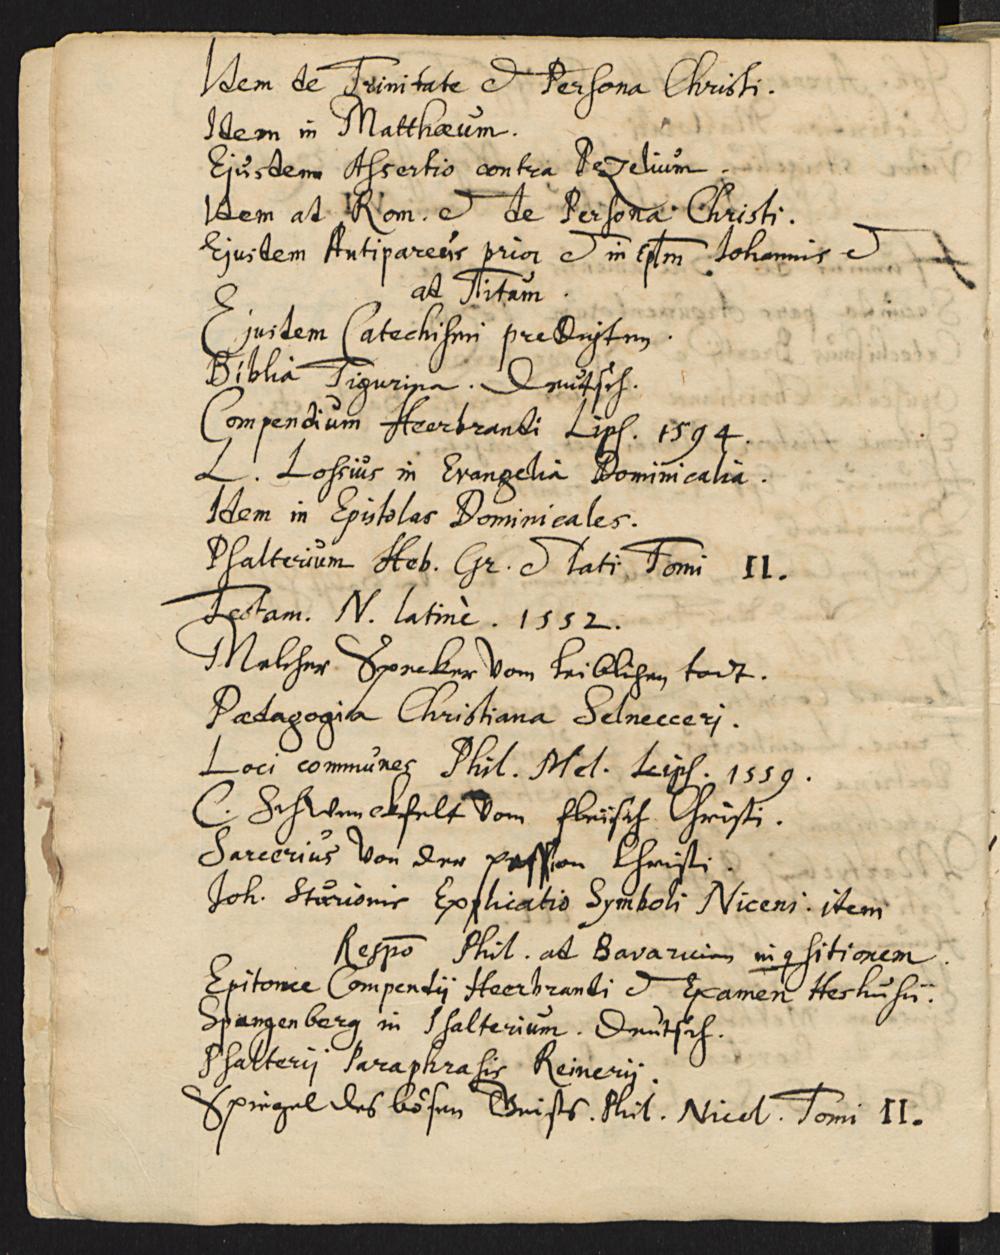 Idem de Trinitate & Persona Christi.
Idem in Matthæum.
Ejusdem Assertio contra Pezelium.
Idem ad Rom. & de Persona Christi.
Ejusdem Antipareus prior & in Eplm Johannis &
ad Titum.
Ejusdem Catechismi predigten.
Biblia Tigurina. Deutsch.
Compendium Heerbrandi Lips. 1594.
L. Lossius in Evangelia Dominicalia.
Idem in Epistolas Dominicales.
Psalterium Heb. Gr. & lati Tomi II.
Testam. N. latinè. 1552.
Melcher Specker vom leiblichen todt.
Pædagogia Christiana Selnecceri.
Loci communes Phil. Mel. Leips. 1559.
C. Schwenckfelt vom fleisch Christi.
Sarcerius von der passion Christi.
Joh. Sturionis Explicatio Symboli Niceni. item
Respō Phil. ad Bavaricam inqsitionem.
Epitome Compendij Heerbrandi & Examen Heshusii.
Spangenberg in Psalterium. Deutsch.
Psalterij Paraphrasis Reinerij.
Spiegel des bösen Geists. Phil. Nicol. Tomi II.